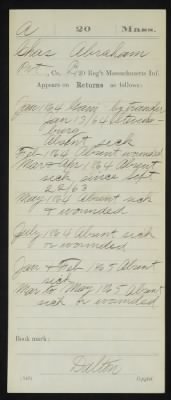 A 20 Mass.
Chas Abraham
Pvt., Co. G, 20 Reg't Massachusetts Inf.
Appears on Returns as follows:
Jan 1864 Gain by transfer
Jan 13/64
burg
Absent sick
Feb 1864 Absent wounded
Mar & Apr 1864 Absent
sick since Sept
22/63
May 1864 Absent sick
& wounded
July 1864 Absent sick
or wounded
Jan & Feb 1865 Absent
sick
Mar to May 1865 Absent
sick or wounded
Book mark:
Dalton
(546) Copyist.